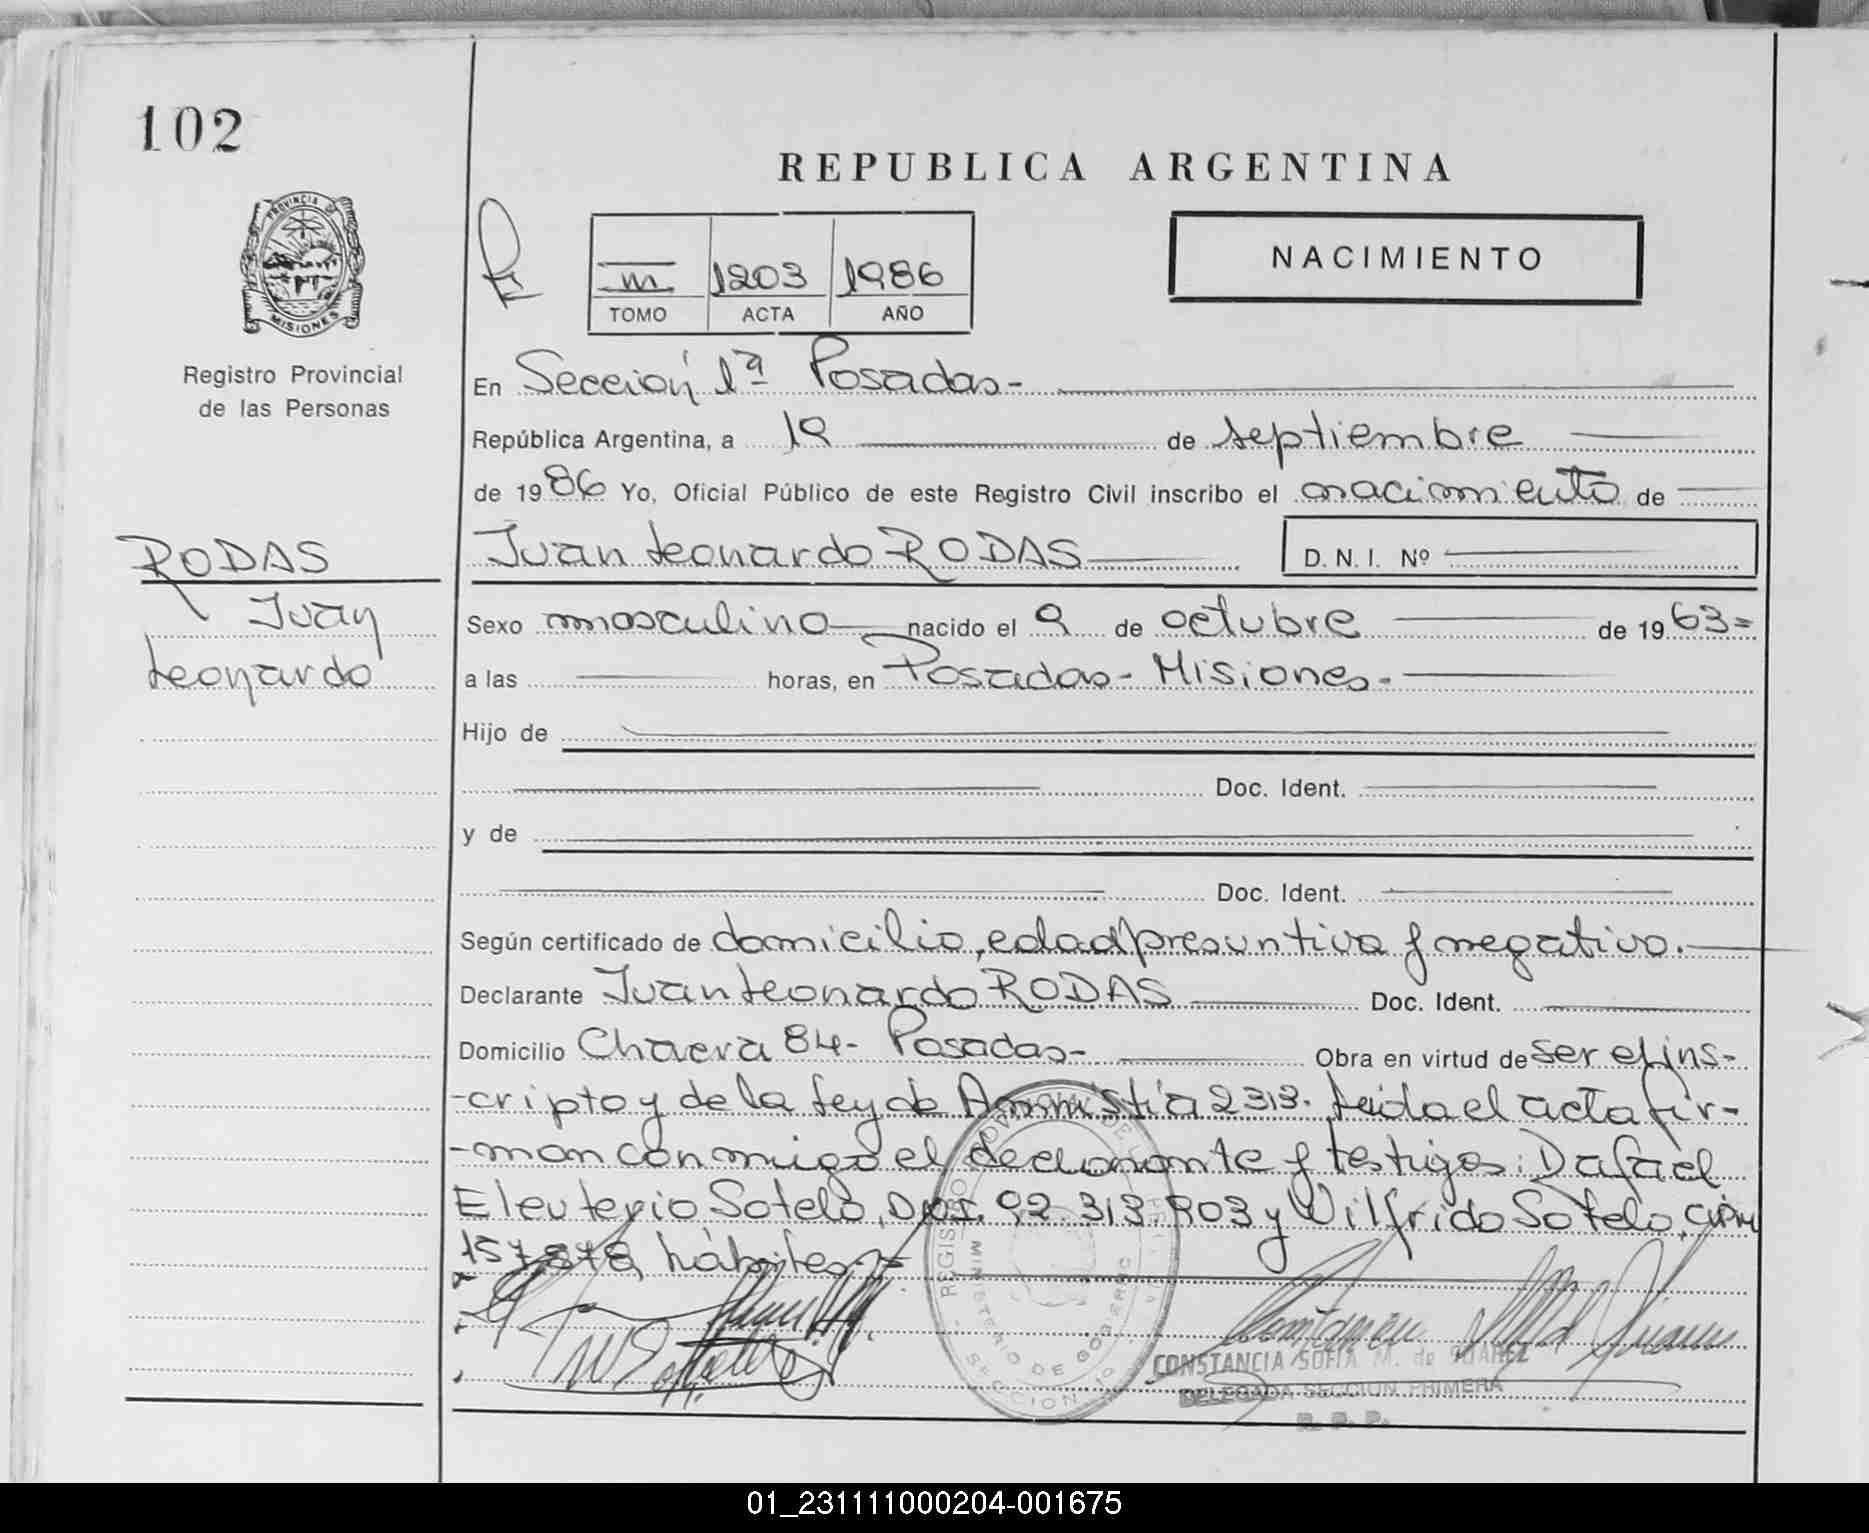 102
REPUBLICA ARGENTINA
PROVINCIA DE
MISIONES
Registro Provincial
de las Personas
NACIMIENTO
III 1203 1986
TOMO ACTA AÑO
En Sección 1ª Posadas-
República Argentina, a 19 de septiembre
de 1986 Yo, Oficial Público de este Registro Civil inscribo el nacimiento de
RODAS
Juan
Leonardo
Juan Leonardo RODAS D.N.I. Nº
Sexo masculino nacido el 9 de octubre de 1963=
a las horas, en Posadas- Misiones.-
Hijo de
Doc. Ident.
y de
Doc. Ident.
Según certificado de domicilio, edad presuntiva y negativo.
Declarante Juan Leonardo RODAS Doc. Ident.
Domicilio Chacra 84- Posadas- Obra en virtud de ser el ins-
-cripto y de la Ley de Amnistía 2313. Leida el acta fir-
-man conmigo el declarante y testigos: Dafael
Eleuterio Sotelo, D.N.I. 92.313.903 y Wilfrido Sotelo,
hábiles.-
REGISTRO PROVINCIAL DE
MINISTERIO DE GOBIERNO
SECCION 1º
CONSTANCIA SOFIA M. de SUAREZ
DELEGADA SECCION PRIMERA
R. P. P.
01_231111000204-001675